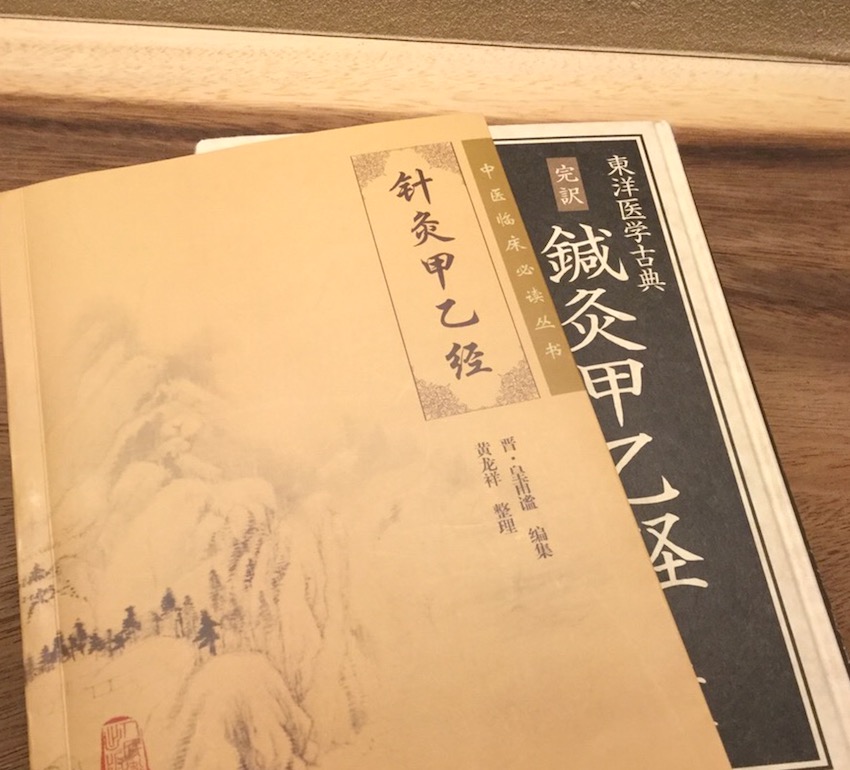 针灸甲乙经
中医临床必读丛书
晋·皇甫谧 编集
黄龙祥 整理
東洋医学古典
完訳
鍼灸甲乙経